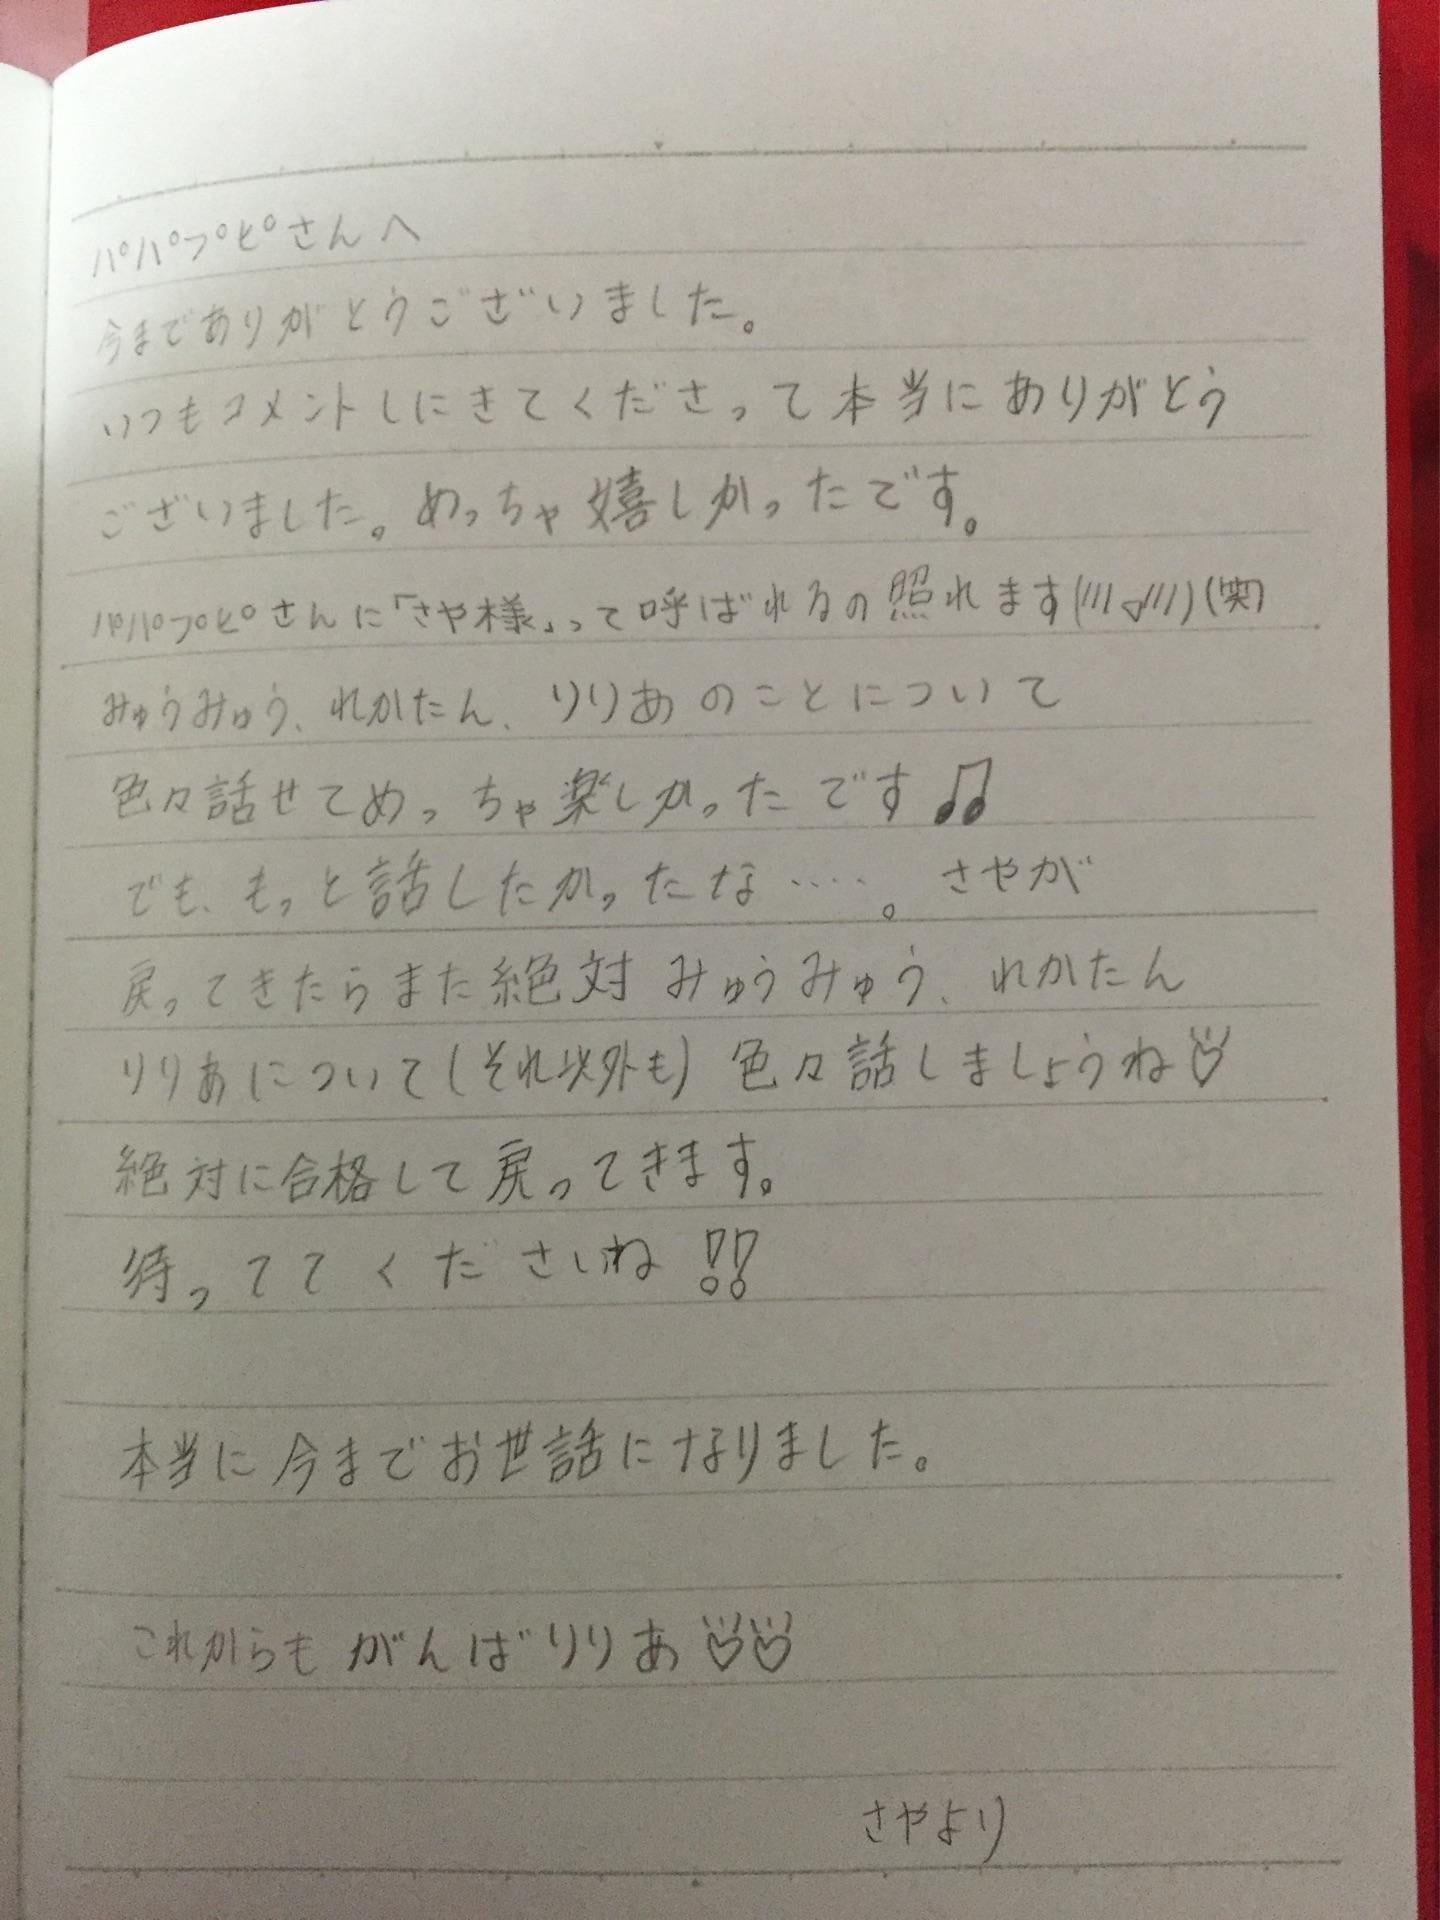 パパプピさんへ
今までありがとうございました。
いつもコメントしにきてくださって本当にありがとう
ございました。めっちゃ嬉しかったです。
パパプピさんに「さや様」って呼ばれるの照れます(///▽///)(笑)
みゅうみゅう、れかたん、りりあのことについて
色々話せてめっちゃ楽しかったです♫
でも、もっと話したかったな‥‥。さやが
戻ってきたらまた絶対みゅうみゅう、れかたん
りりあについて(それ以外も)色々話しましょうね♡
絶対に合格して戻ってきます。
待っててくださいね!!
本当に今までお世話になりました。
これからもがんばりりあ♡♡
さやより